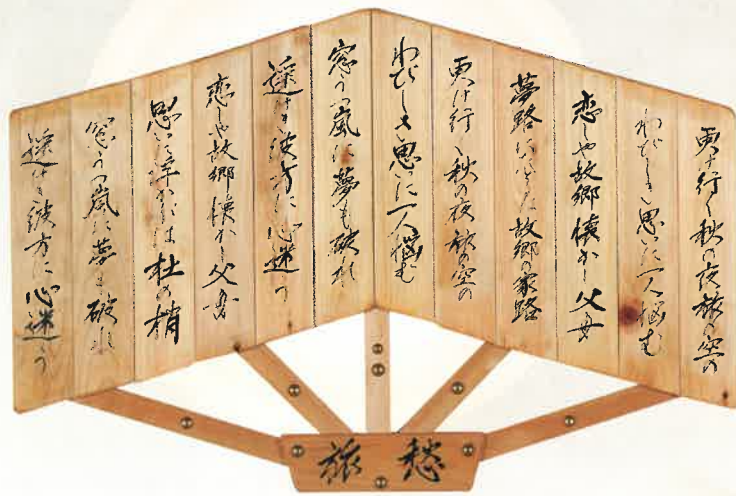 更け行く秋の夜旅の空の
わびしき思いに一人悩む
恋しや故郷懐かし父母
夢路にたどる故郷の家路
更け行く秋の夜旅の空の
わびしき思いに一人悩む
窓うつ嵐に夢も破れ
遥けき彼方に心迷う
恋しや故郷懐かし父母
思いに浮かぶは杜の梢
窓うつ嵐に夢も破れ
遥けき彼方に心迷う
旅愁